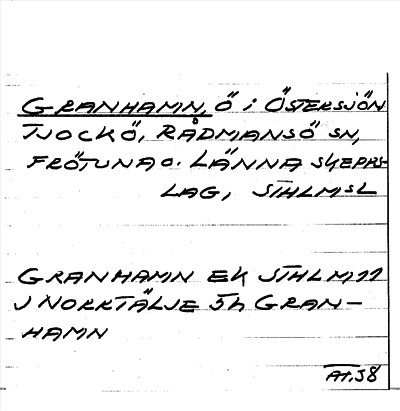 GRANHAMN, Ö i ÖSTERSJÖN
TJOCKÖ, RÅDMANSÖ SN,
FRÖTUNA O. LÄNNA SKEPPS-
LAG, STHLMSL
GRANHAMN EK STHLM 11
J NORRTÄLJE 5h GRAN-
HAMN
AT. 38